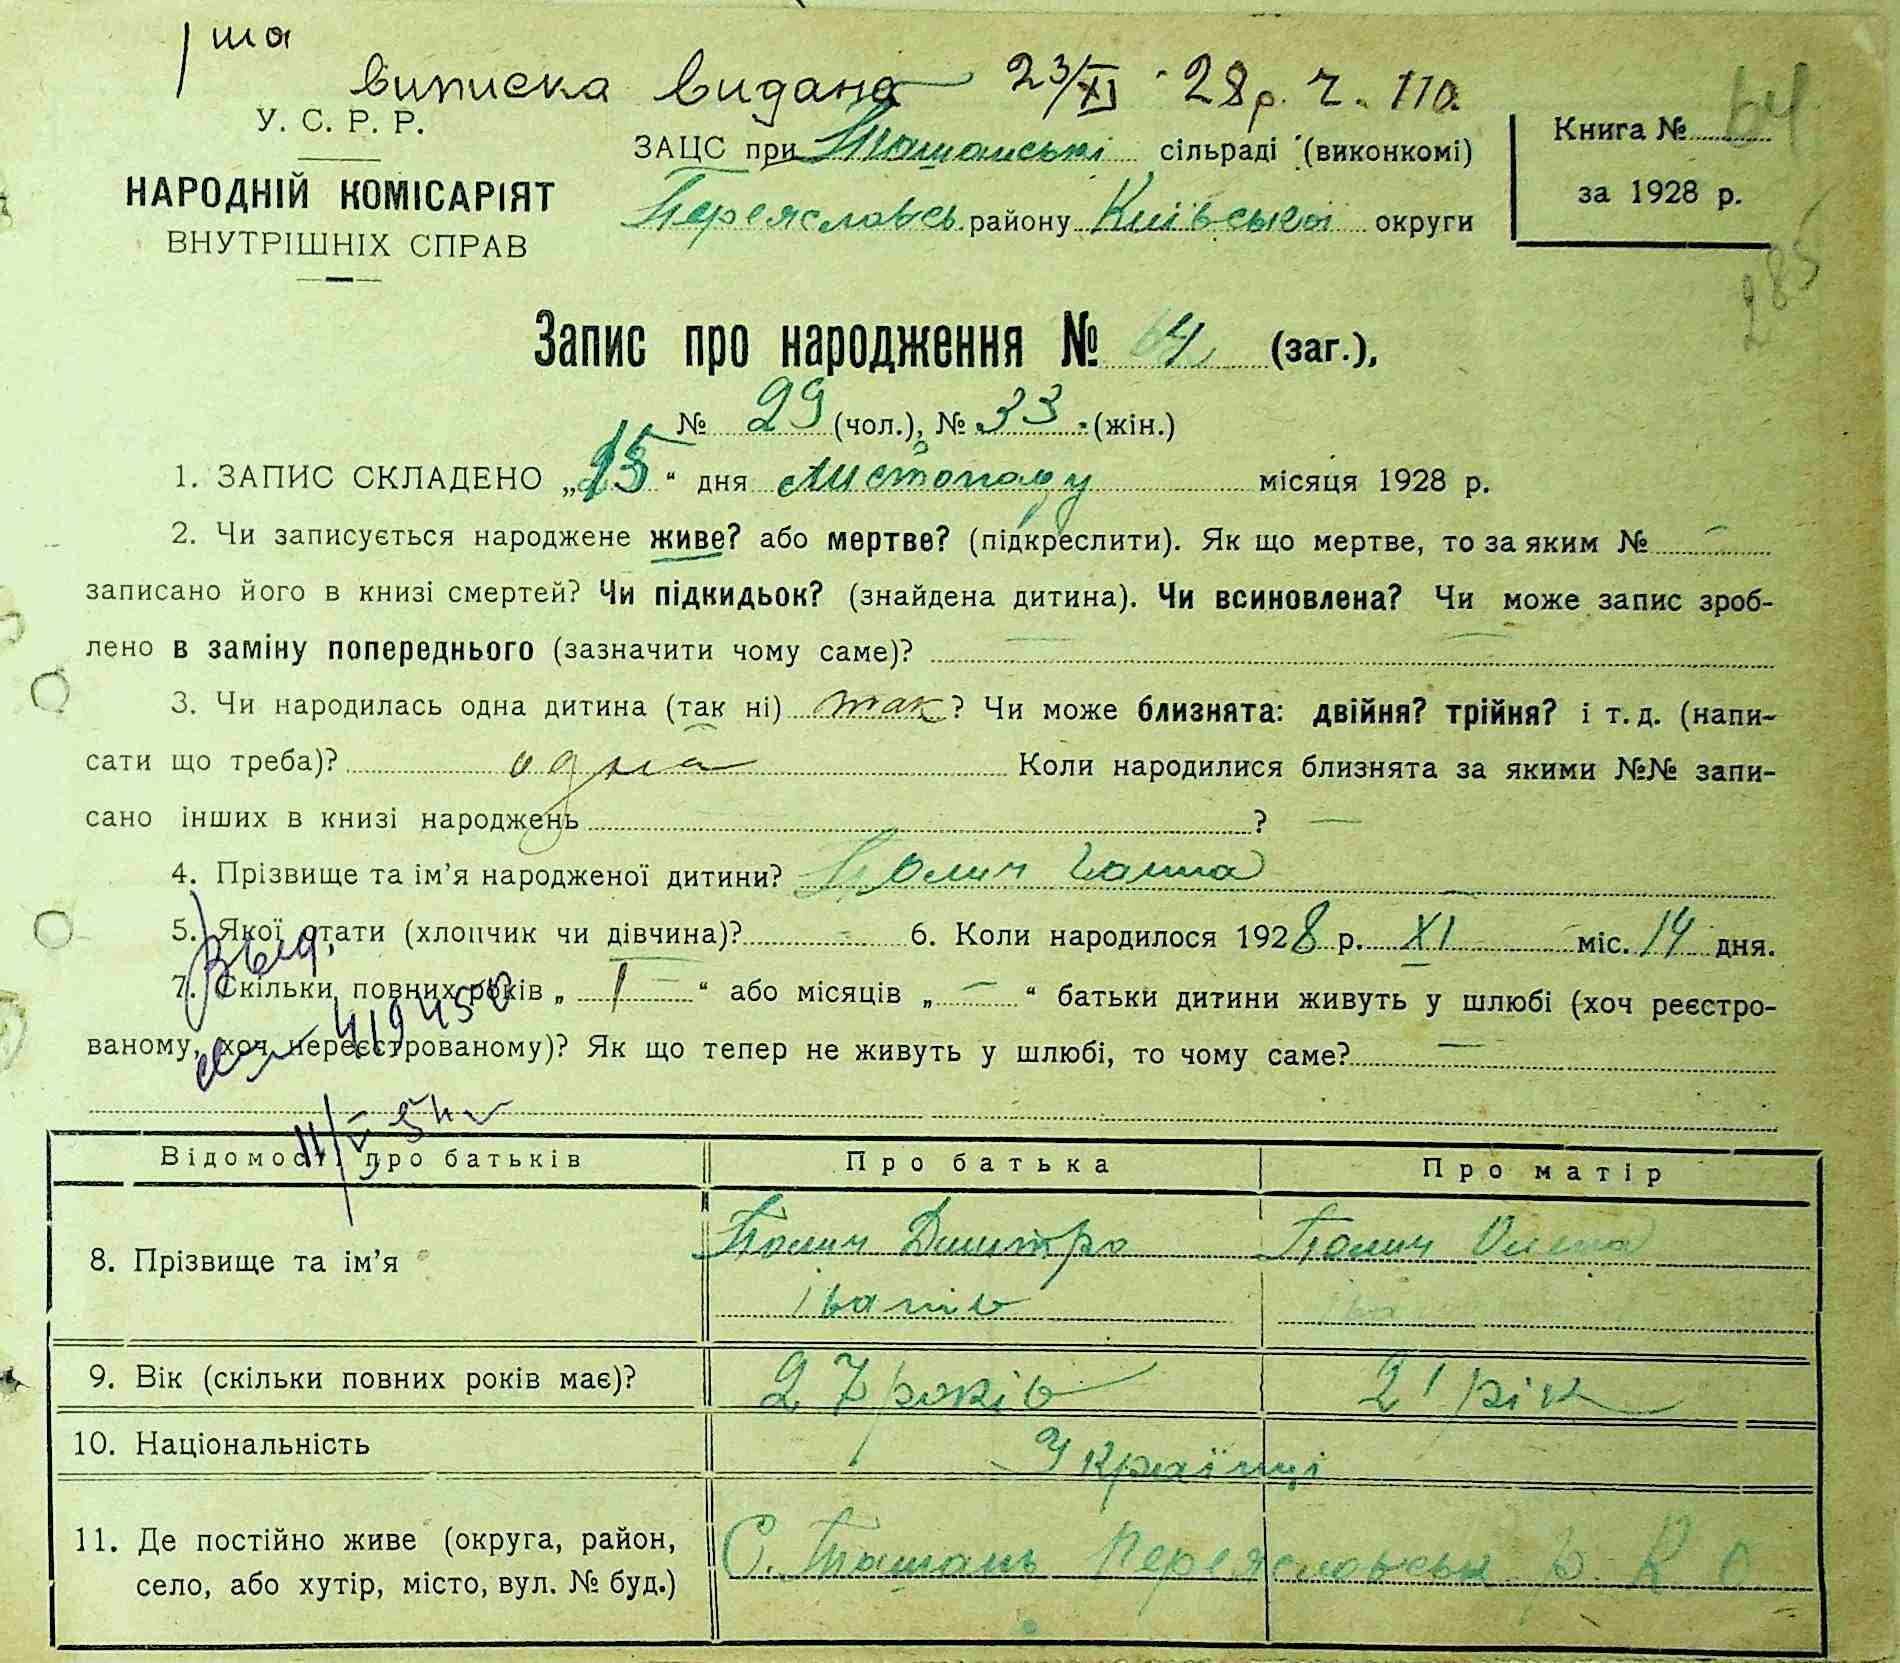 1ша
виписка видана 23/XI 28 р. ч. 110.
У. С. Р. Р.
НАРОДНІЙ КОМІСАРІЯТ
ВНУТРІШНІХ СПРАВ
ЗАЦС при Ташанські сільраді (виконкомі)
Переяславсь району Київської округи
Книга № 64
за 1928 р.
285
Запис про народження № 64 (заг.),
№ 29 (чол.), № 33. (жін.)
1. ЗАПИС СКЛАДЕНО „15“ дня листопаду місяця 1928 р.
2. Чи записується народжене живе? або мертве? (підкреслити). Як що мертве, то за яким №
записано його в книзі смертей? Чи підкидьок? (знайдена дитина). Чи всиновлена? Чи може запис зроб-
лено в заміну попереднього (зазначити чому саме)?
3. Чи народилась одна дитина (так ні) так? Чи може близнята: двійня? трійня? і т. д. (напи-
сати що треба)? одна Коли народилися близнята за якими №№ запи-
сано інших в книзі народжень ?
4. Прізвище та ім’я народженої дитини? Полич Ганна
5. Якої стати (хлопчик чи дівчина)? 6. Коли народилося 1928 р. XI міс. 14 дня.
7. Скільки повних років „ 1 “ або місяців „ – “ батьки дитини живуть у шлюбі (хоч реєстро-
ваному, хоч нереєстрованому)? Як що тепер не живуть у шлюбі, то чому саме?
Выд.
419450
11/V 54
Відомості про батьків Про батька Про матір
8. Прізвище та ім’я Полич Дмитро Полич Олена
Іванів
9. Вік (скільки повних років має)? 27 років 21 рік
10. Національність Українці
11. Де постійно живе (округа, район, С. Ташань Переяславськ р. К о
село, або хутір, місто, вул. № буд.)